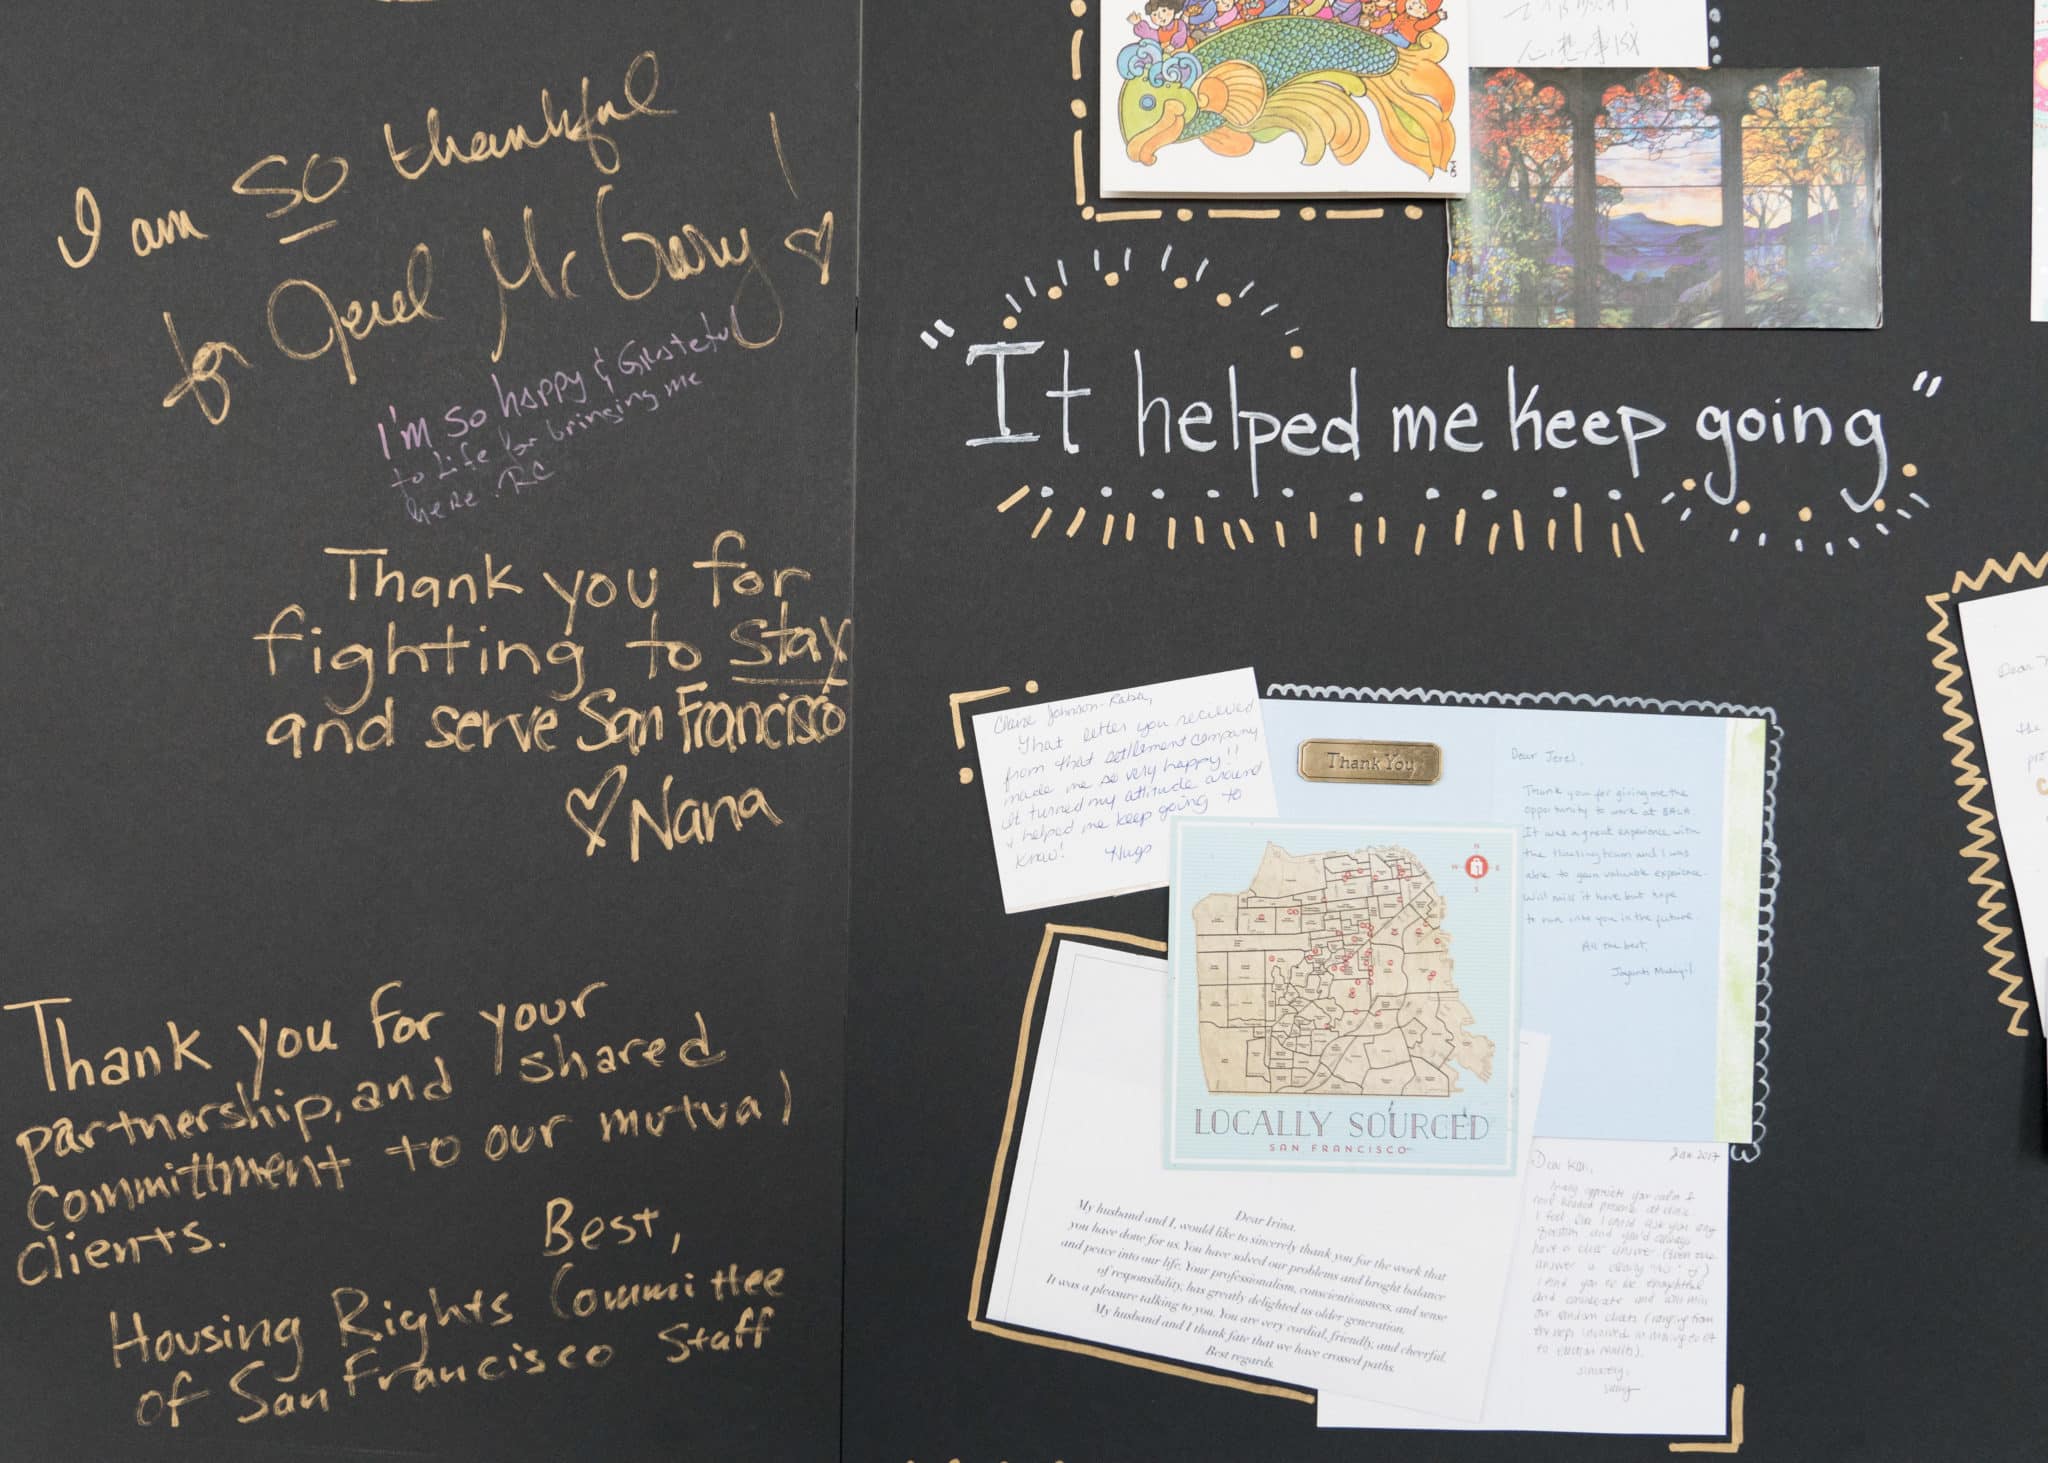 I am so thankful
for Jerel McGrary!
I'm so happy & Grateful
to Life for bringing me
here. RC
Thank you for
fighting to stay
and serve San Francisco
Nana
Thank you for your
partnership, and shared
committment to our mutual
clients.
Best,
Housing Rights Committee
of San Francisco Staff
心想事成
"It helped me keep going"
Claire Johnson-Raba,
That letter you recieved
from that settlement company
made me so very happy!!
It turned my attitude around
& helped me keep going to
know! Hugs
Thank You
Dear Jerel,
Thank you for giving me the
opportunity to work at BALA.
It was a great experience with
the Housing team and I was
able to gain valuable experience.
Will miss it here but hope
to run into you in the future.
All the best,
N
W E
S
LOCALLY SOURCED
SAN FRANCISCO
Dear Irina,
My husband and I, would like to sincerely thank you for the work that
you have done for us. You have solved our problems and broght balance
and peace into our life. Your professionalism, conscientiousness, and sense
of responsibility, has greatly delighted us older generation.
It was a pleasure talking to you. You are very cordial, friendly, and cheerful.
My husband and I thank fate that we have crossed paths.
Best regards.
Jan 2017
Dear
appreciate your calm &
level headed presence at clinic.
I feel like I could ask you any
question and you'd always
have a clear answer (even
answer is clearly "no" :)
I find you to be thoughtful
and considerate and
our random chats (ranging from
the reps involved in moving to LA
to election reality).
Sincerely,
Dear
the